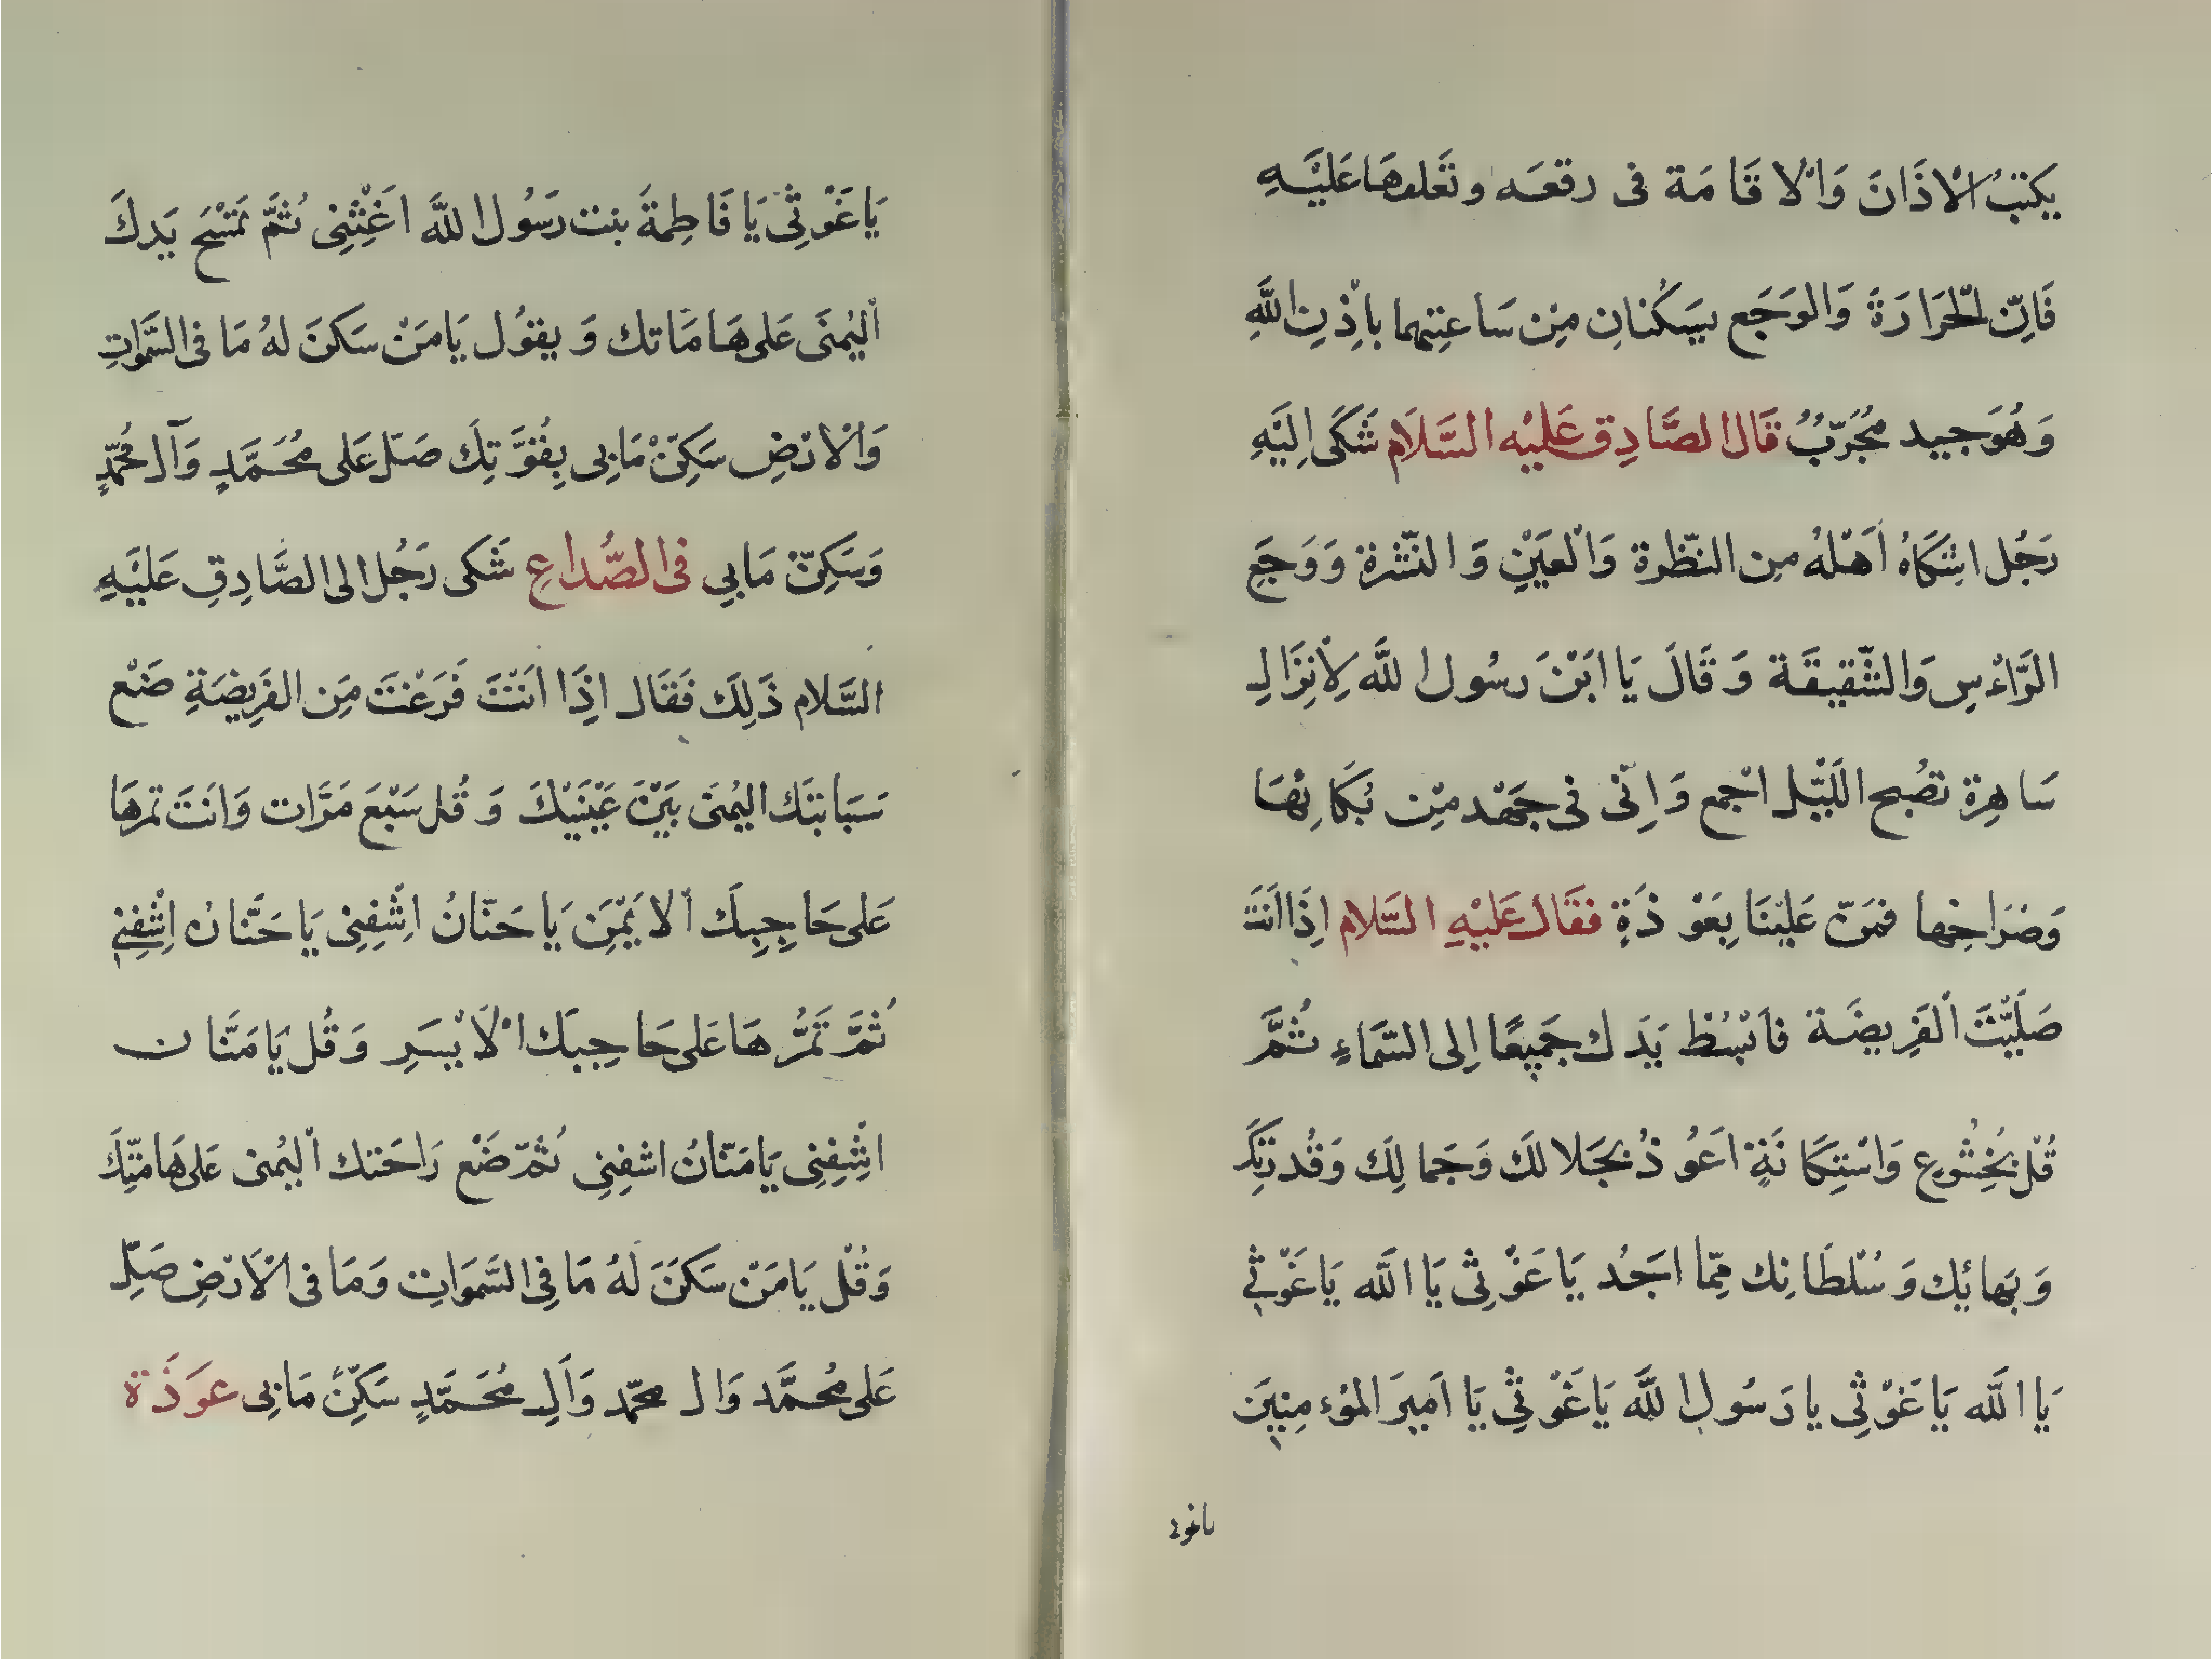 يكتبُ الْاذَانَ وَالْا قَا مَة فى رقعَه وتَعَلقهَا عَليْهِ
فَاِنّ الحَرَارَةَ وَالوَجَع يسَكُنانِ مِن سَا عتِهما باِذْنِ اللَّهِ
وَهُوَجيد مجُرَبٌ قَال الصَّادِق عَليْه السَّلَام شَكَى اِلَيْهِ
رَجُل اشِتَكاهُ اَهْلهُ مِن النّظرة وَالْعَيْنِ وَ النّشرة وَوَجَع
الرَّاءسِ وَالشّقيقَة وَقَالَ يَا ابَنْ رسُول اللَّه لِاْنزَالِ
سَاهِرة تصُبح اللَيْل اجْمع وَاِنّى فى جَهْد مِن بُكَا ئِهَا
وَصُرَاخِها فمَنّ عَليْنَا بِعَوْ ذَةٍ فقَال عَليْهِ السَّلام اِذَا اَنتَ
صَلَيْتَ الْفَرِيضَة فاَبْسُط يَدَ ك جَمِيعًا اِلى السَّمَاءِ ثمَُّ
قُل بُخِشُوعِ وَاسْتِكَا نَةٍ اَعُوذُ بجَلا لكَ وَجَما لِكَ وَقُد رَتِكَ
وَ بَهائِك وَ سُلْطَا نِك مِّما اَجَدُ يَا غَوْ ثِى يَا اللَّه يَا غَوْثِي
يَا اللَّه يَا غَوْثِى يا رَسُول اللَّه يَا غَوْ ثِي يَا اَمِيرَ المُوْء مِنِينَ
ياغوث
يَا غَوْ ثِى يَا فَا طِمةَ بنت رَسُول اللَّه اَغِثْنِى ثُمَّ تَمْسَح يَدكَ
اْليُمنَى عَلى هَا مَا تك وَ يقوُل يَامَنْ سَكنَ لهُ مَا فى السَّموَاتِ
وَاْلارْضِ سَكِنّ مَا بِى بِقُوَّ تِكَ صَلّ عَلى مُحَمَّدٍ وَآل مُحمّدٍ
وَسَكِنّ مَا بي فى الصُّداعِ شَكى رَجُل الى الصَّادِقِ عَليْهِ
السَّلام ذَلِكَ فَقَال اِذَا اَنتَ فَرَغتَ مِنَ الفَرِيضَةِ ضَع
سَبَابتَك اليُمنَى بَيْنَ عَيْنَيْكَ وَ قُل سَبْعَ مَرَّات وَانَتَ تمرهَا
عَلى حَا جِبِكَ الْا يَمْنِ يَا حَنّانُ اشِفِنِى يَا حَنَّانُ اِشْفِنِي
ثُمَّ تَمُرُّ هَا عَلى حَا جِبَك الْاَ يْسَرِ وَ قُل يَا مَنَّا ن
اشِفِنِى يَا مَنّانُ اشفِنِى ثُمّ ضَعْ رَاحَتك اْليُمنى عَلى هَامَتِكَ
وَقُل يَا مَنْ سَكنَ لهُ مَا فِى السَّموَاتِ وَمَا فى الْاَرْضِ صَلِّ
عَلى مُحمَّد وَال محمّد وَآلِ مُحَمَّدٍ سَكِنّ مَا بِى عوَذَة